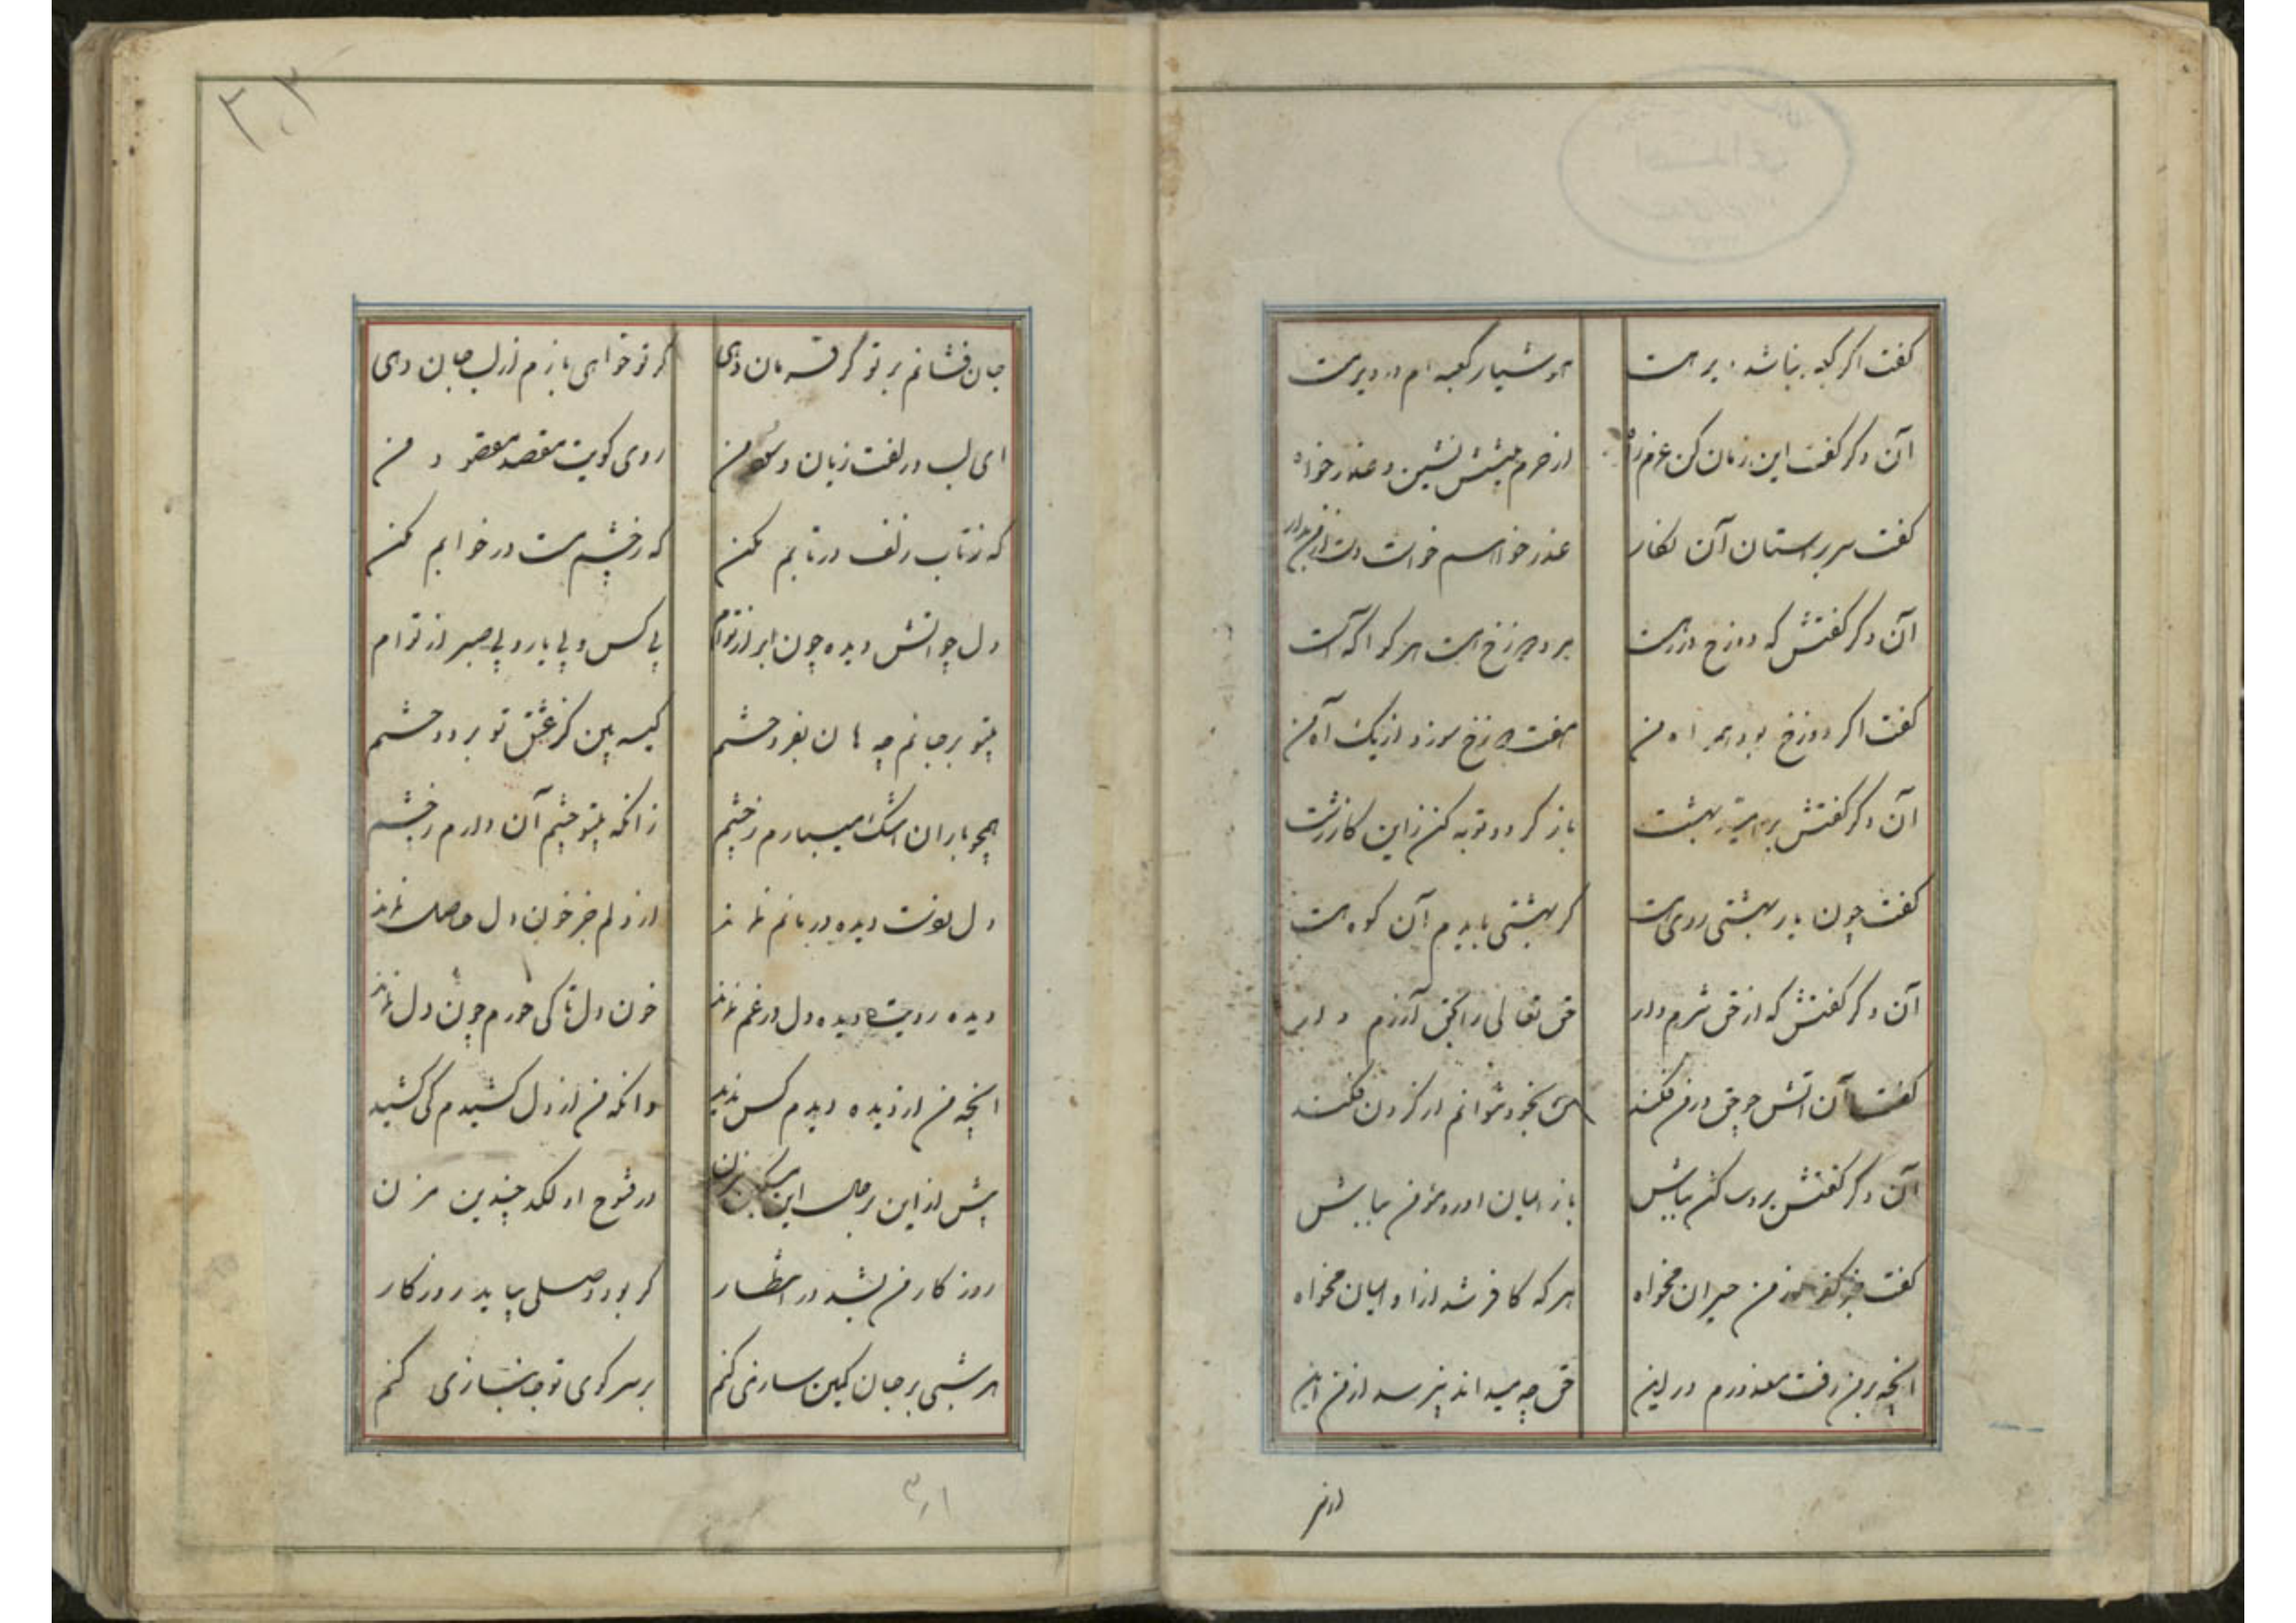 کفت اکر کعبه نباشد دیر هست هوشیار کعبه ام در دیر مست
آن دکر کفت این زمان کن عزم راه در حرم بنشین و عذر خواه
کفت سر بر آستان آن نکار عذر خواهم خواست دست از من بدار
آن دکر کفتش که دوزخ در رهست مرد دوزخ نیست هر کو آکه است
کفت اکر دوزخ بود همراه من هفت دوزخ سوزد از یک آه من
آن دکر کفتش بر امید بهشت باز کرد و توبه کن زاین کار زشت
کفت چون یار بهشتی روی هست کر بهشتی بایدم آن کوه هست
آن دکر کفتش که از حق شرم دار حق تعالی را بحق آزرم دار
کفت آن آتش چو حق در من فکند من بخود نتوانم از کردن فکند
آن دکر کفتش برو ساکن بباش باز ایمان آور و مؤمن بباش
کفت جز کفر از من حیران مخواه هر که کافر شد ازو ایمان مخواه
انچه بر من رفت معذورم در این حق چه میداند نپرسد از من این
جان فشانم بر تو کر فرمان دهی کر تو خواهی بازم از لب جان دهی
ای لب و زلفت زیان و سود من روی کویت مقصد مقصود من
که ز تاب زلف در تابم مکن که ز چشم مست در خوابم مکن
دل چو اتش دیده چون ابر از توام بی کس و بی یار و بی صبر از توام
بیتو بر جانم جهان بفروختم کیسه بین کز عشق تو بر دوختم
همچو باران اشک میبارم ز چشم زانکه بیتو چشم آن دارم ز چشم
دل ز دست دیده در ماتم نماند از دلم جز خون دل حاصل نماند
دیده رویت دیده دل در غم نماند خون دل تا کی خورم چون دل نماند
انچه من از دیده دیدم کس ندید وانکه من از دل کشیدم کی کشید
بیش از این بر جان این مسکین مزن در فتوح او لکد چندین مزن
روزکار من بشد در انتظار کر بود وصلی بیاید روزکار
هر شبی بر جان کمین سازی کنم بر سر کوی تو جانبازی کنم
۳۰۲
۳۰۱